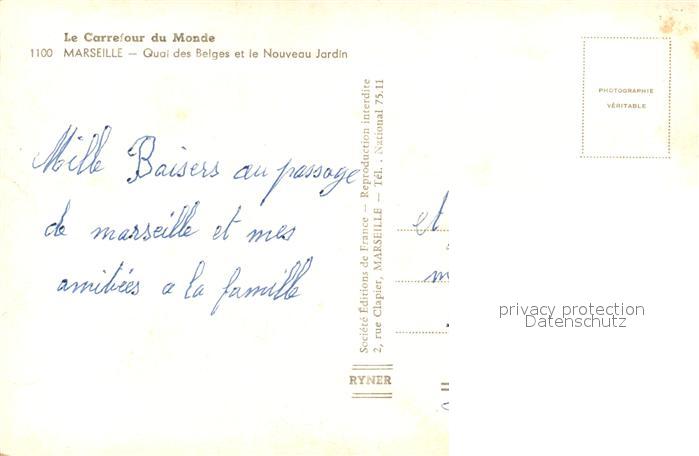 Le Carrefour du Monde
1100 MARSEILLE — Quai des Belges et le Nouveau Jardin
PHOTOGRAPHIE
VÉRITABLE
Mille Baisers au passage
de marseille et mes
amitiées a la famille
Société Éditions de France — Reproduction interdite
2, rue Clapier, MARSEILLE — Tél. : National 75.11
RYNER
et
privacy protection
Datenschutz